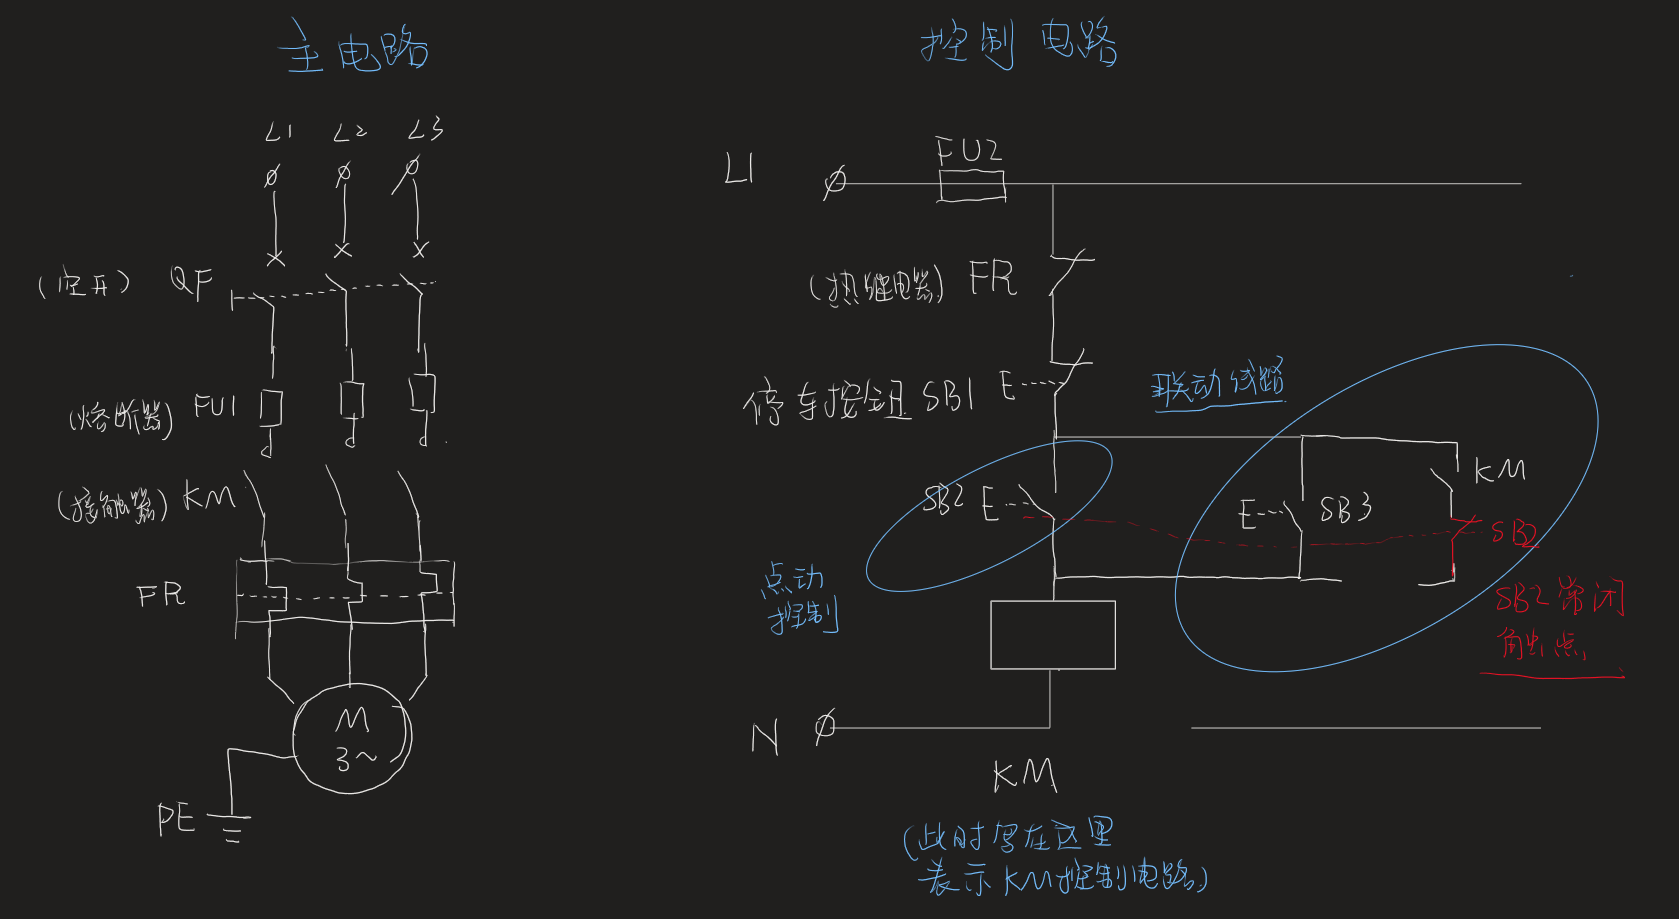 主电路
L1 L2 L3
(空开) QF
(熔断器) FU1
(接触器) KM
FR
M
3~
PE
控制电路
L1
FU2
(热继电器) FR
停车按钮 SB1 E
联动线路
SB2 E
点动
控制
E SB3
KM
SB2
SB2常闭
触点
N
KM
(此时写在这里
表示KM控制电路)